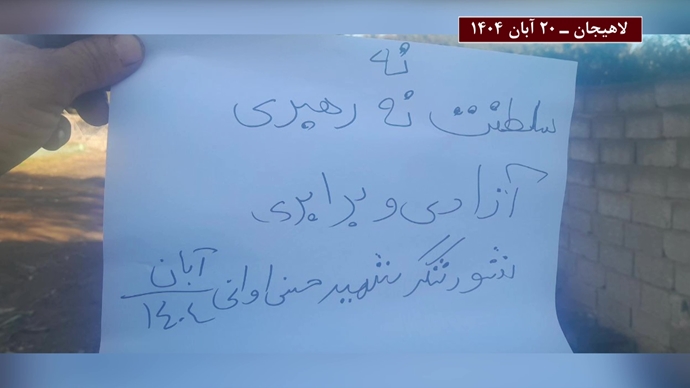 لاهیجان ــ ۲۰ آبان ۱۴۰۴
نه
سلطنت نه رهبری
آزادی و برابری
شورشگر شهید حسنی اوانی آبان
۱۴۰۴